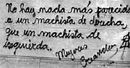 No hay nada más parecido
a un machista de derecha,
que un machista de
izquierda.